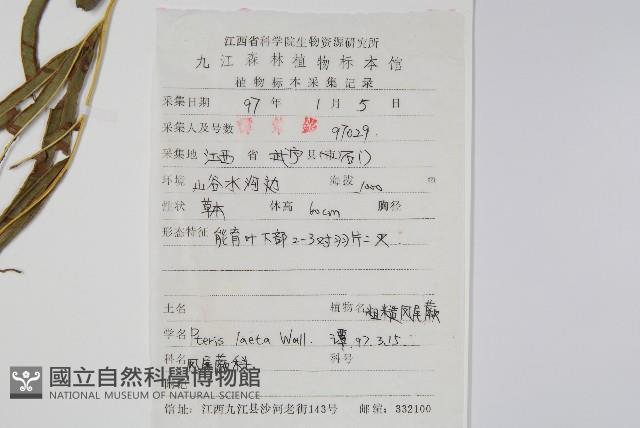 江西省科学院生物资源研究所
九江森林植物标本馆
植物标本采集记录
采集日期 97 年 1 月 5 日
采集人及号数 97029.
采集地 江西 省 武宁 县 石门
环境 山谷水沟边 海拔 1000 m
性状 草本 体高 60cm 胸径
形态特征 能育叶下部2-3对羽片二叉.
土名 植物名 粗糙凤尾蕨
学名 Pteris laeta Wall. 谭.97.3.15.
科名 凤尾蕨科 科号
國立自然科學博物館
NATIONAL MUSEUM OF NATURAL SCIENCE
馆址:江西九江县沙河老街143号 邮编:332100